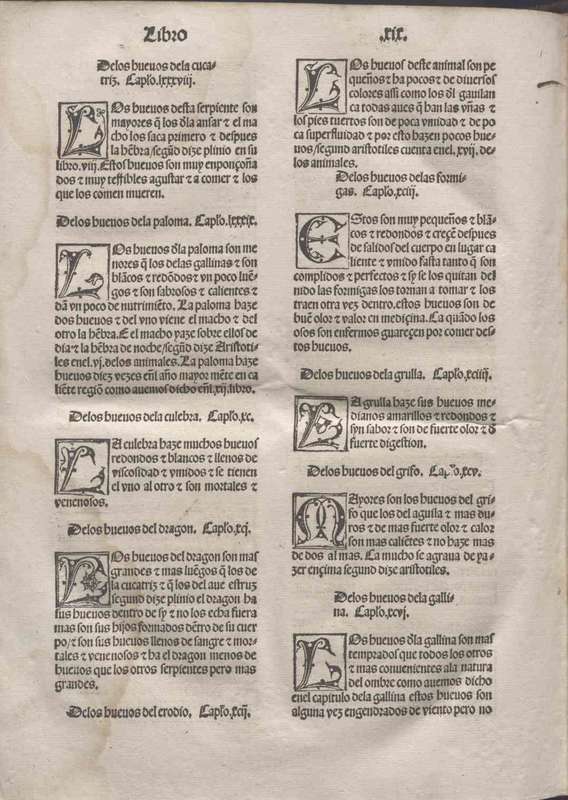 Libro
.xix.
Delos hueuos dela cuca-
triz. Capło.lxxxviij.
LOs hueuos desta serpiente son
mayores q̃ los d̃la ansar ⁊ el ma
cho los saca primero ⁊ despues
la hẽbra/segũd dize plinio en su
libro.viij.Estos hueuos son muy enponçoña
dos ⁊ muy teffibles agustar ⁊ a comer ⁊ los
que los comen mueren.
Delos hueuos dela paloma. Capło.lxxxix.
LOs hueuos d̃la paloma son me
nores q̃ los delas gallinas ⁊ son
blãcos ⁊ redõdos ⁊ vn poco luẽ-
gos ⁊ son sabrosos ⁊ calientes ⁊
dã vn poco de nutrimiẽto. La paloma haze
dos hueuos ⁊ del vno viene el macho ⁊ del
otro la hẽbra. E el macho yaze sobre ellos de
dia ⁊ la hẽbra de noche/segũd dize Aristoti-
les enel.vj.delos animales. La paloma haze
hueuos diez vezes enl̃ año mayor mẽte en ca
liẽte regiõ como auemos dicho enl̃.xij.libro.
Delos hueuos dela culebra. Capło.xc.
LA culebra haze muchos hueuos
redondos ⁊ blancos ⁊ llenos de
viscosidad ⁊ vmidos ⁊ se tienen
el vno al otro ⁊ son mortales ⁊
venenosos.
Delos hueuos del dragon. Capło.xcj.
LOs hueuos del dragon son mas
grandes ⁊ mas luẽgos q̃ los de
la cucatriz ⁊ q̃ los del aue estruz
segund dize plinio el dragon ha
sus hueuos dentro de sy ⁊ no los echa fuera
mas son sus hijos formados dẽtro de su cuer
po/⁊ son sus hueuos llenos de sangre ⁊ mor-
tales ⁊ venenosos ⁊ ha el dragon menos de
hueuos que los otros serpientes pero mas
grandes.
Delos hueuos del erodio. Capło.xcij.
LOs hueuos deste animal son pe
queños ⁊ ha pocos ⁊ de diuersos
colores assi como los d̃l gauilan
ca todas aues q̃ han las vñas ⁊
los pies tuertos son de poca vmidad ⁊ de po
ca superfluidad ⁊ por esto hazen pocos hue-
uos/segund aristotiles cuenta enel.xvij.de-
los animales.
Delos hueuos delas formi-
gas. Capło.xciij.
EStos son muy pequeños ⁊ blã-
cos ⁊ redondos ⁊ creçẽ despues
de salidos del cuerpo en lugar ca
liente ⁊ vmido fasta tanto q̃ son
complidos ⁊ perfectos ⁊ sy se los quitan del
nido las formigas los tornan a tomar ⁊ los
traen otra vez dentro.estos hueuos son de
buẽ olor ⁊ valor en mediçina. Ca quãdo los
osos son enfermos guareçen por comer des-
tos hueuos.
Delos hueuos dela grulla. Capło.xciiij.
LA grulla haze sus hueuos me-
dianos amarillos ⁊ redondos ⁊
syn sabor ⁊ son de fuerte olor ⁊ d̃
fuerte digestion.
Delos hueuos del grifo. Capło.xcv.
MAyores son los hueuos del gri-
fo que los del aguila ⁊ mas du-
ros ⁊ de mas fuerte olor ⁊ calor
son mas caliẽtes ⁊ no haze mas
de dos al mas. Ca mucho se agraua de ya-
zer ençima segund dize aristotiles.
Delos hueuos dela galli-
na. Capło.xcvj.
LOs hueuos d̃la gallina son mas
temprados que todos los otros
⁊ mas conuenientes ala natura
del ombre como auemos dicho
enel capitulo dela gallina estos hueuos son
alguna vez engendrados de viento pero no